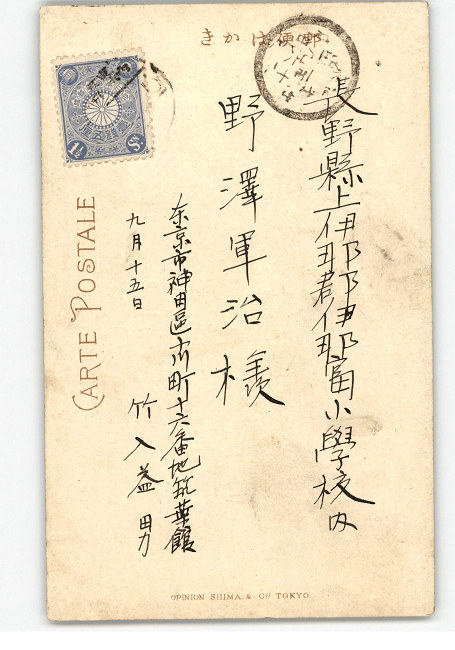 きかは便郵
長野縣上伊那郡伊那富小學校内
野澤軍治様
東京市神田區小川町十六番地筑華館
九月十五日
竹入益男
CARTE POSTALE
OPINION SHIMA. & Co TOKYO.